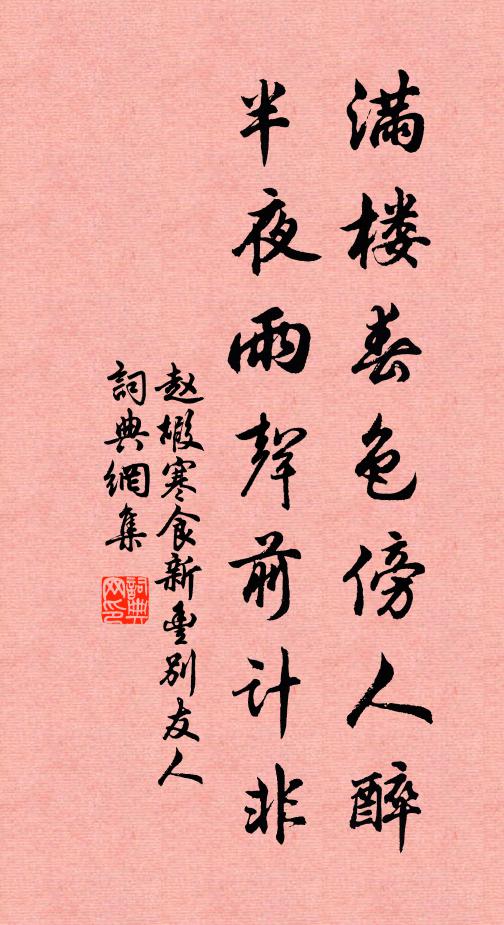 满楼春色傍人醉
半夜雨声前计非
赵嘏寒食新丰别友人
詞典網集
詞典網印